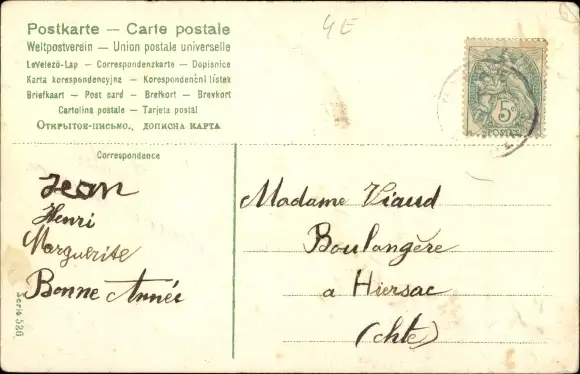 4E
Postkarte — Carte postale
Weltpostverein — Union postale universelle
Levelező-Lap — Correspondenzkarte — Dopisnice
Karta korespondencyjna — Korespondenční lístek
Briefkaart — Post card — Brefkort — Brevkort
Cartolina postale — Tarjeta postal
Открытое-письмо., дописна карта
Correspondence
Jean
Henri
Marguerite
Bonne Année
Serie 526
5c
POSTES
Madame Viaud
Boulangère
a Hiersac
(chte)